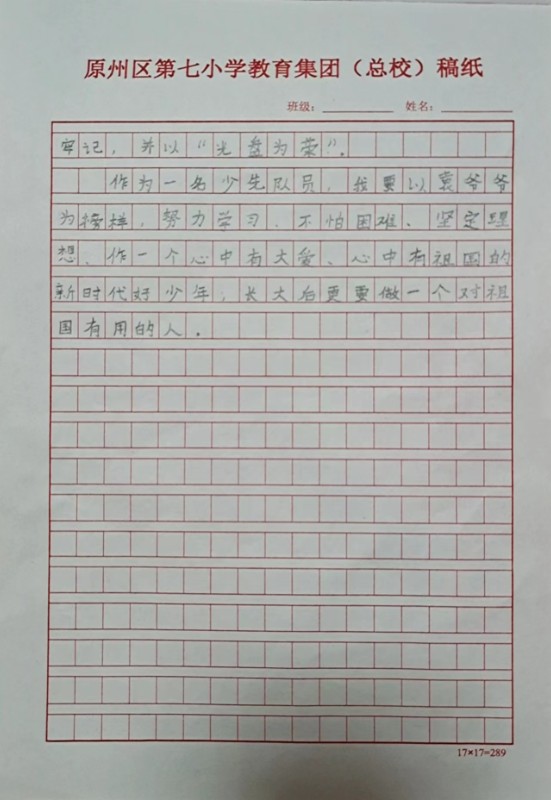 原州区第七小学教育集团（总校）稿纸
班级：
姓名：
牢记，并以“光盘为荣”。
作为一名少先队员，我要以袁爷爷
为榜样，努力学习、不怕困难、坚定理
想、作一个心中有大爱、心中有祖国的
新时代好少年，长大后更要做一个对祖
国有用的人。
17×17=289